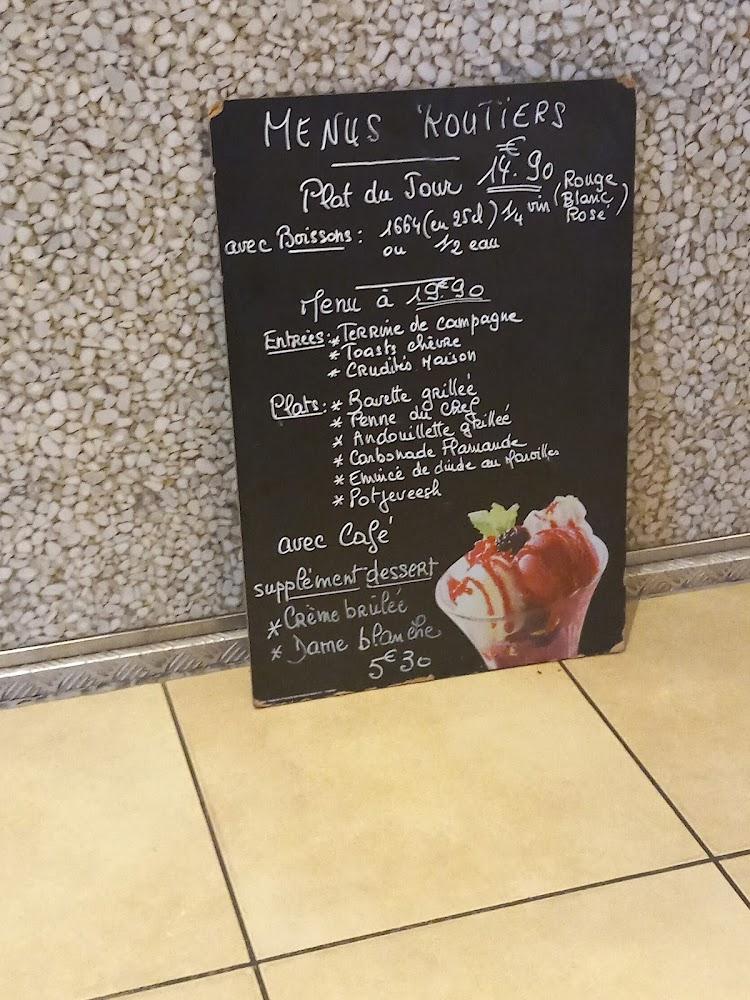 MENUS ROUTIERS
Plat du Jour 14.€90
avec Boissons: 1664 (en 25cl) 1/4 vin (Rouge Blanc Rosé)
ou 1/2 eau
Menu à 19€90
Entrées: * Terrine de campagne
* Toasts chèvre
* Crudités Maison
Plats: * Bavette grillée
* Penne du Chef
* Andouillette grilleé
* Carbonade Flamande
* Emincé de dinde au Maroilles
* Potjeveesh
avec Café
supplément dessert
* Crème brulée
* Dame blanche
5€30